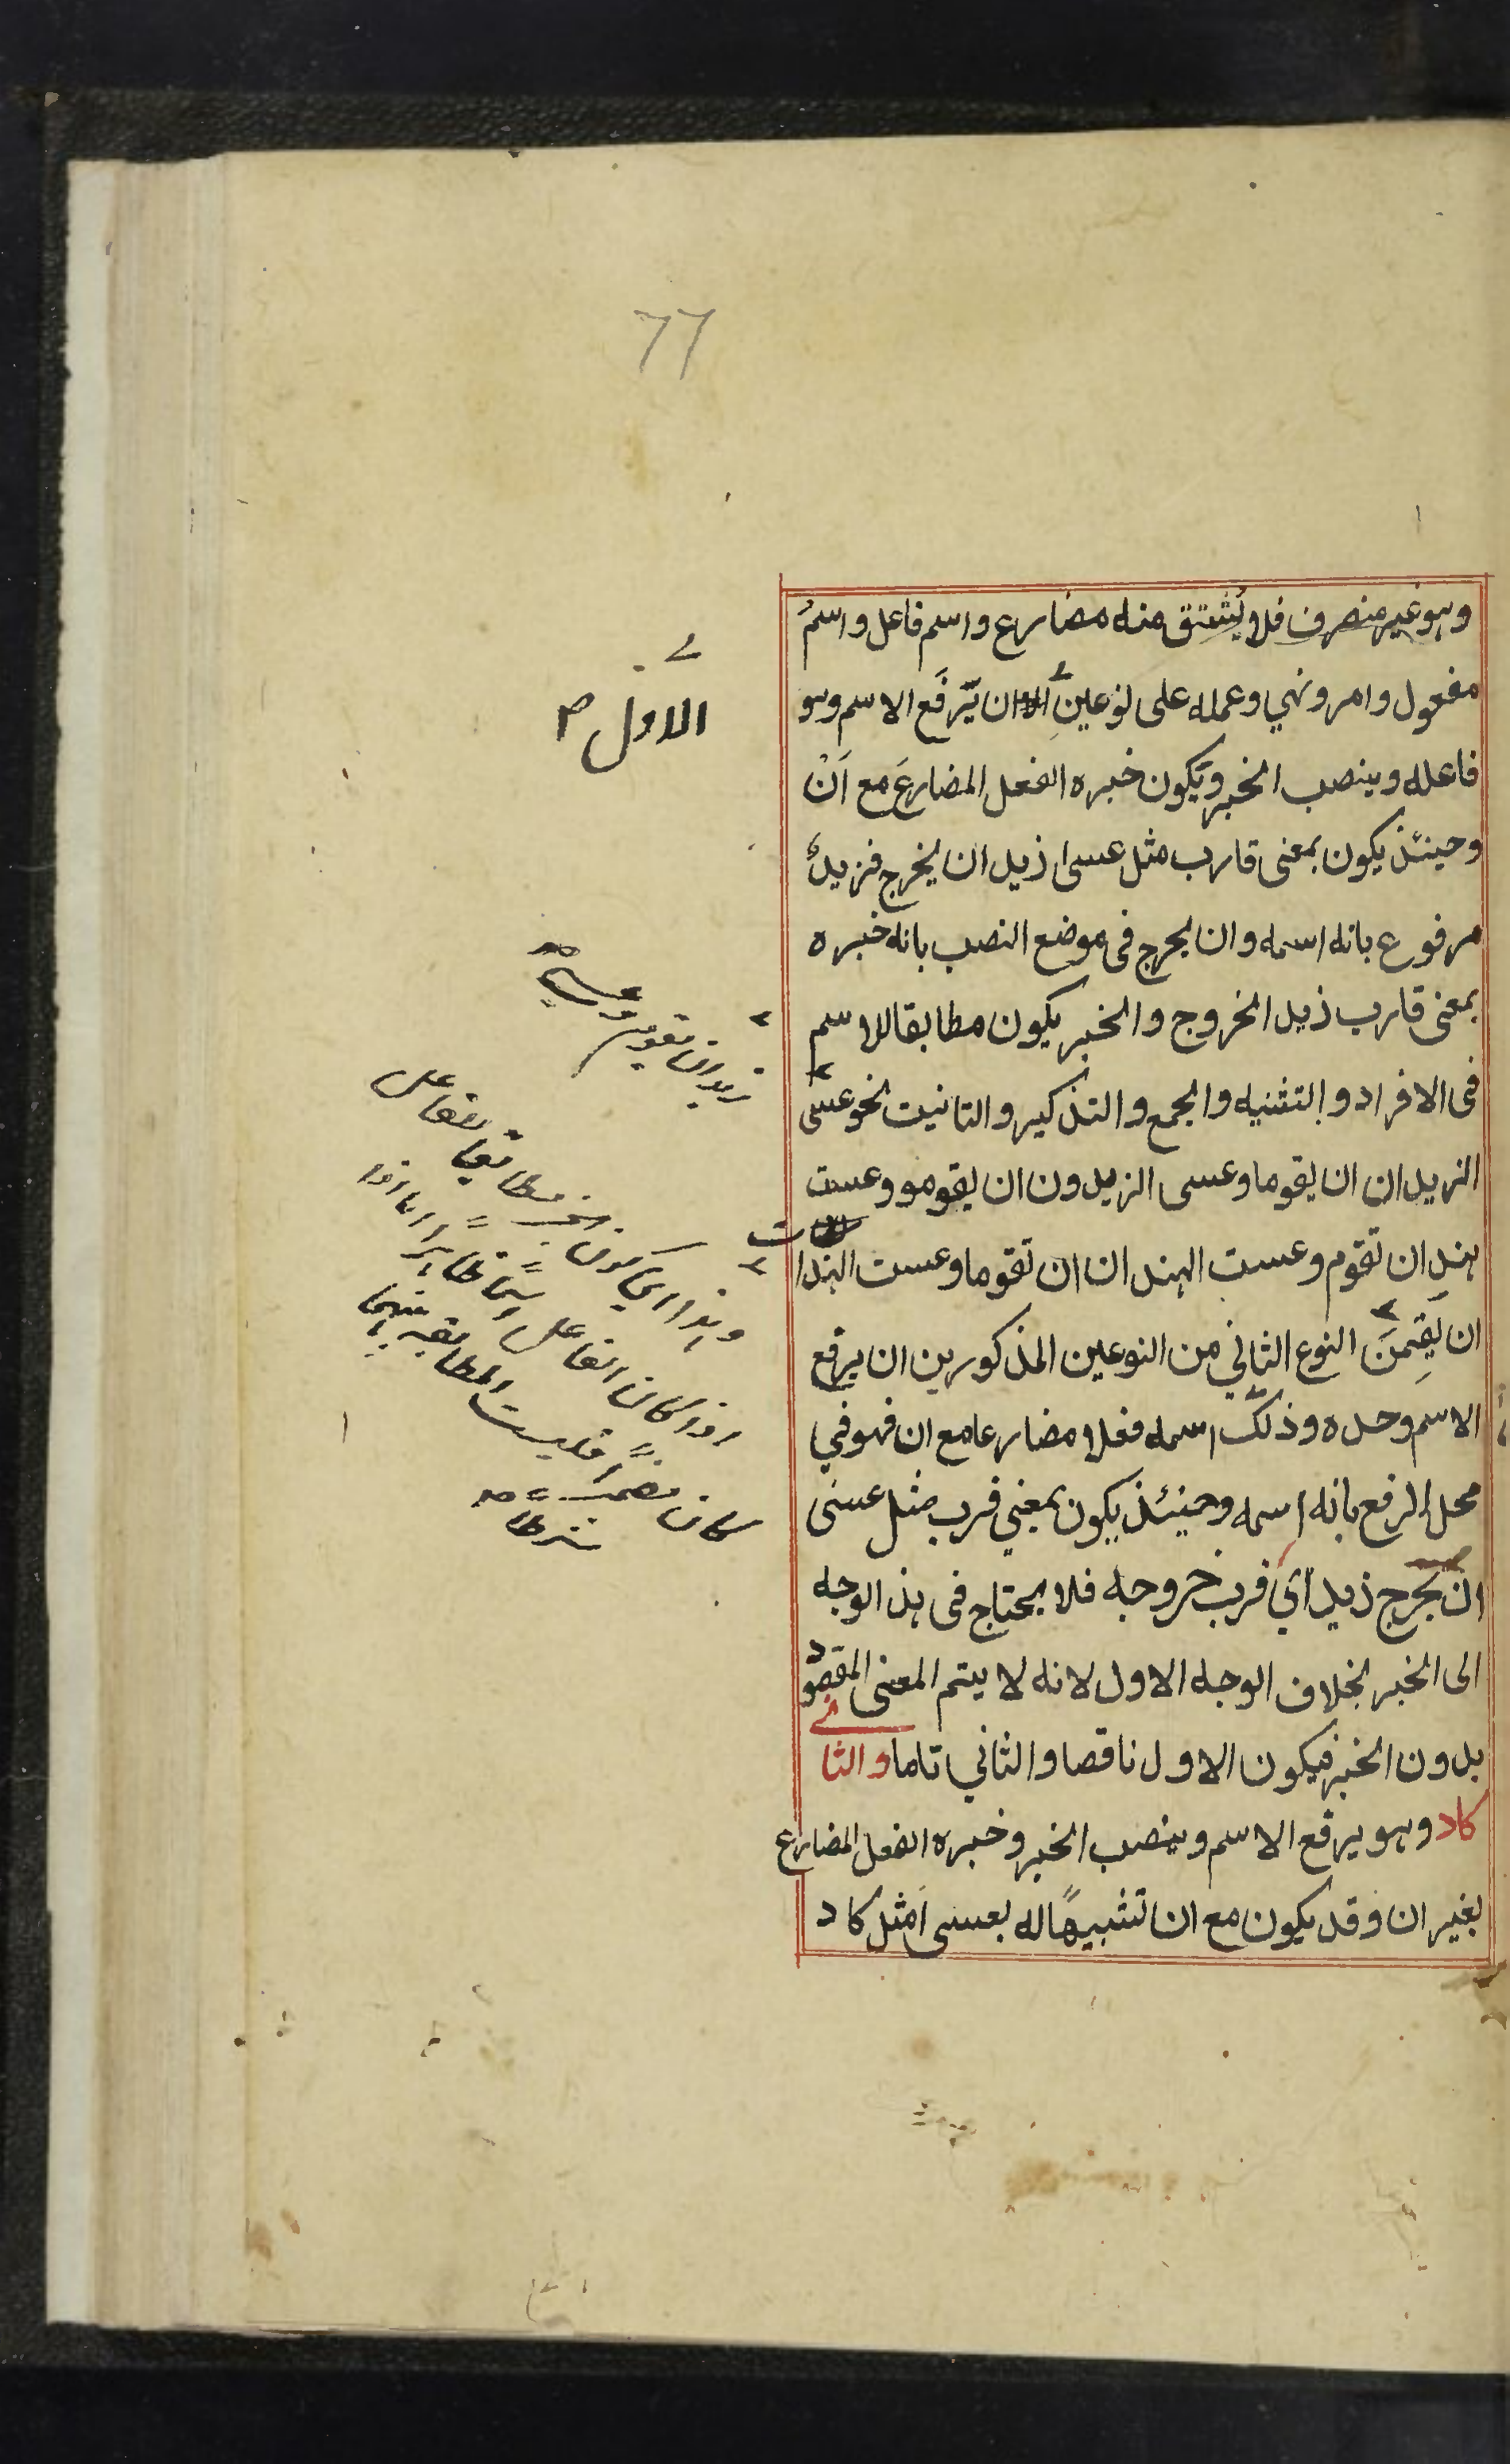 77
وهو غير منصرف فلا يُشتق منه مضارع واسم فاعل واسمُ
مفعول وامر ونهي وعمله على نوعين ان يّرفَع الاسم وهو
فاعله وينصب الخبر ويكون خبره الفعل المضارعَ مع اَنْ
وحينئذ يكون بمعنى قارب مثل عسى زيد ان يخرج فزيدٌ
مرفوع بانه اسمه وان يخرج في موضع النصب بانه خبره
بمعنى قارب زيد الخروج والخبر يكون مطابقا للاسم
في الافراد والتثنيه والجمع والتذكير والتانيث نحو عسى
الزيدان ان يقوما وعسى الزيدون ان يقومو وعست
هند ان تقوم وعست الهندان ان تقوما وعست الهندا
ان يَقِمنَ النوع الثاني من النوعين المذكورين ان يرفع
الاسم وحده وذلك اسمه فعلا مضارعا مع ان فهو في
محل الرفع بانه اسمه وحينئذ يكون بمعني قرب مثل عسى
ان يخرج زيد اي قرب خروجه فلا يحتاج في هذ الوجه
الى الخبر بخلاف الوجه الاول لانه لا يتم المعنى المقصود
بدون الخبر فيكون الاول ناقصا والثاني تاما والثاني
كاد وهو يرفع الاسم وينصب الخبر وخبره الفعل المضارع
بغير ان وقد يكون مع ان تشبيهًا له بعسى مثل كاد
الاول
زيد ان يقوم وعسى
وهذا اي كون الخبر مطابقا للفاعل
اذا كان الفاعل اسمًا ظاهرا اما اذا
كان مضمرًا فليست المطابقة بينهما
شرطا